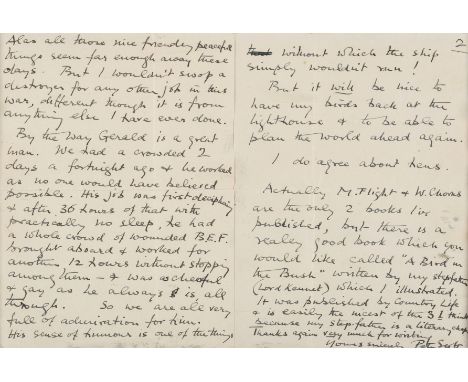 Alas all those nice friendly peaceful
things seem far enough away these
days. But I wouldn't swop a
destroyer for any other job in this
war, different though it is from
anything else I have ever done.
By the Way Gerald is a great
man. We had a crowded 2
days a fortnight ago & he worked
as no one would have believed
possible. His job was first
& after 36 hours of that with
practically no sleep, he had
a whole crowd of wounded B.E.F.
brought aboard & worked for
another 12 hours without stopping
among them - & was as cheerful
& gay as he always is all
through. So we are all very
full of admiration for him.
His sense of humour is one of the things
2
without which the ship
simply wouldn't run!
But it will be nice to
have my birds back at the
lighthouse & to be able to
plan the world ahead again.
I do agree about hens.
Actually M. Flight & W. Chorus
are the only 2 books I've
published, but there is a
realey good book which you
would like called "A Bird in
the Bush" written by my stepfather
(Lord Kennet) which I illustrated.
It was published by Country Life
& is easily the nicest of the 3 I think
because my step-father is a literary chap
Thanks again very much for writing
Yours sincerely Peter Scott